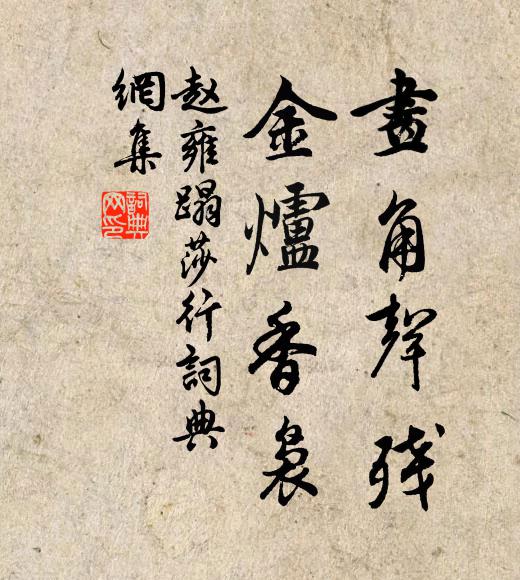 畫角聲殘
金爐香裊
赵雍蹋莎行詞典
網集
詞典
网印